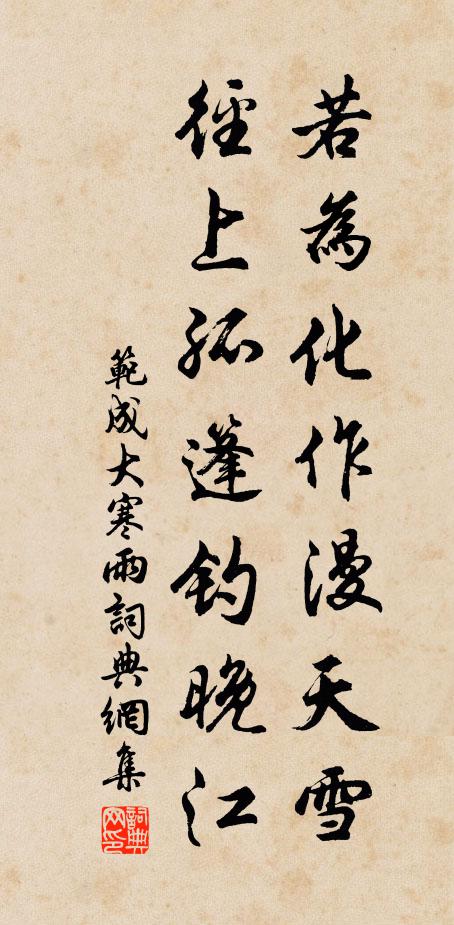 若為化作漫天雪
徑上孤篷釣晚江
範成大寒雨詞典網集
詞典网印